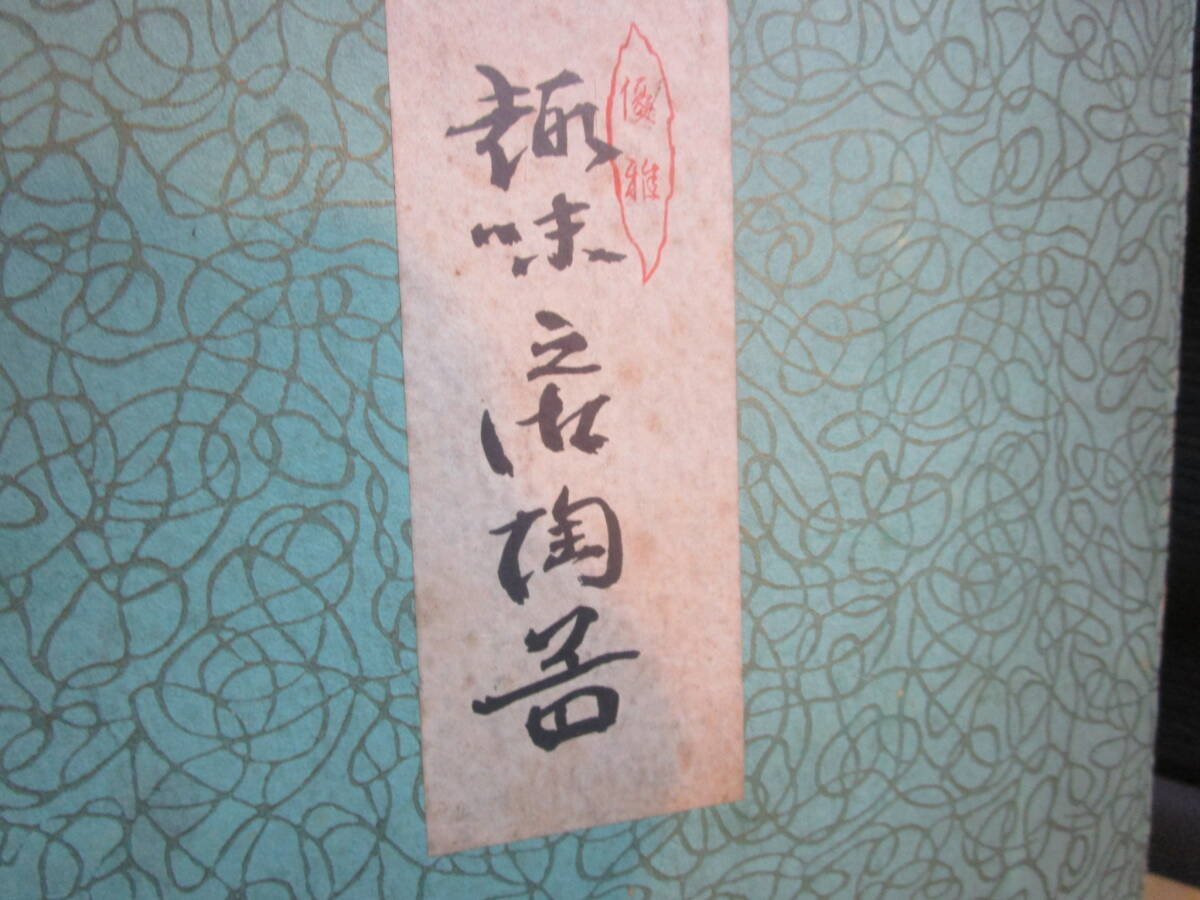 優雅
趣味之陶器